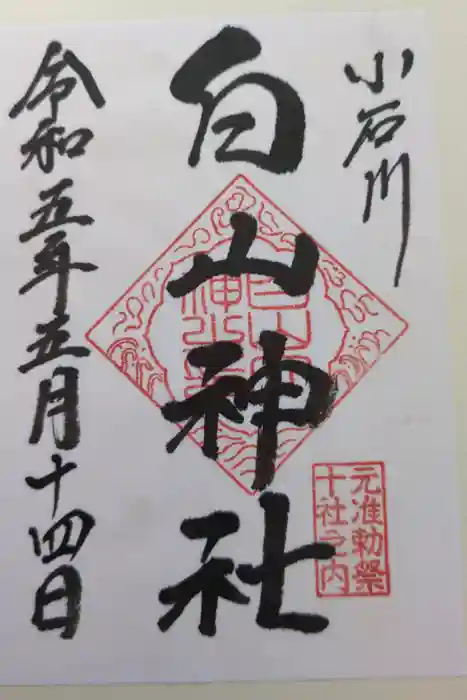 小石川
白山神社
令和五年五月十四日
元准勅祭
十社之内